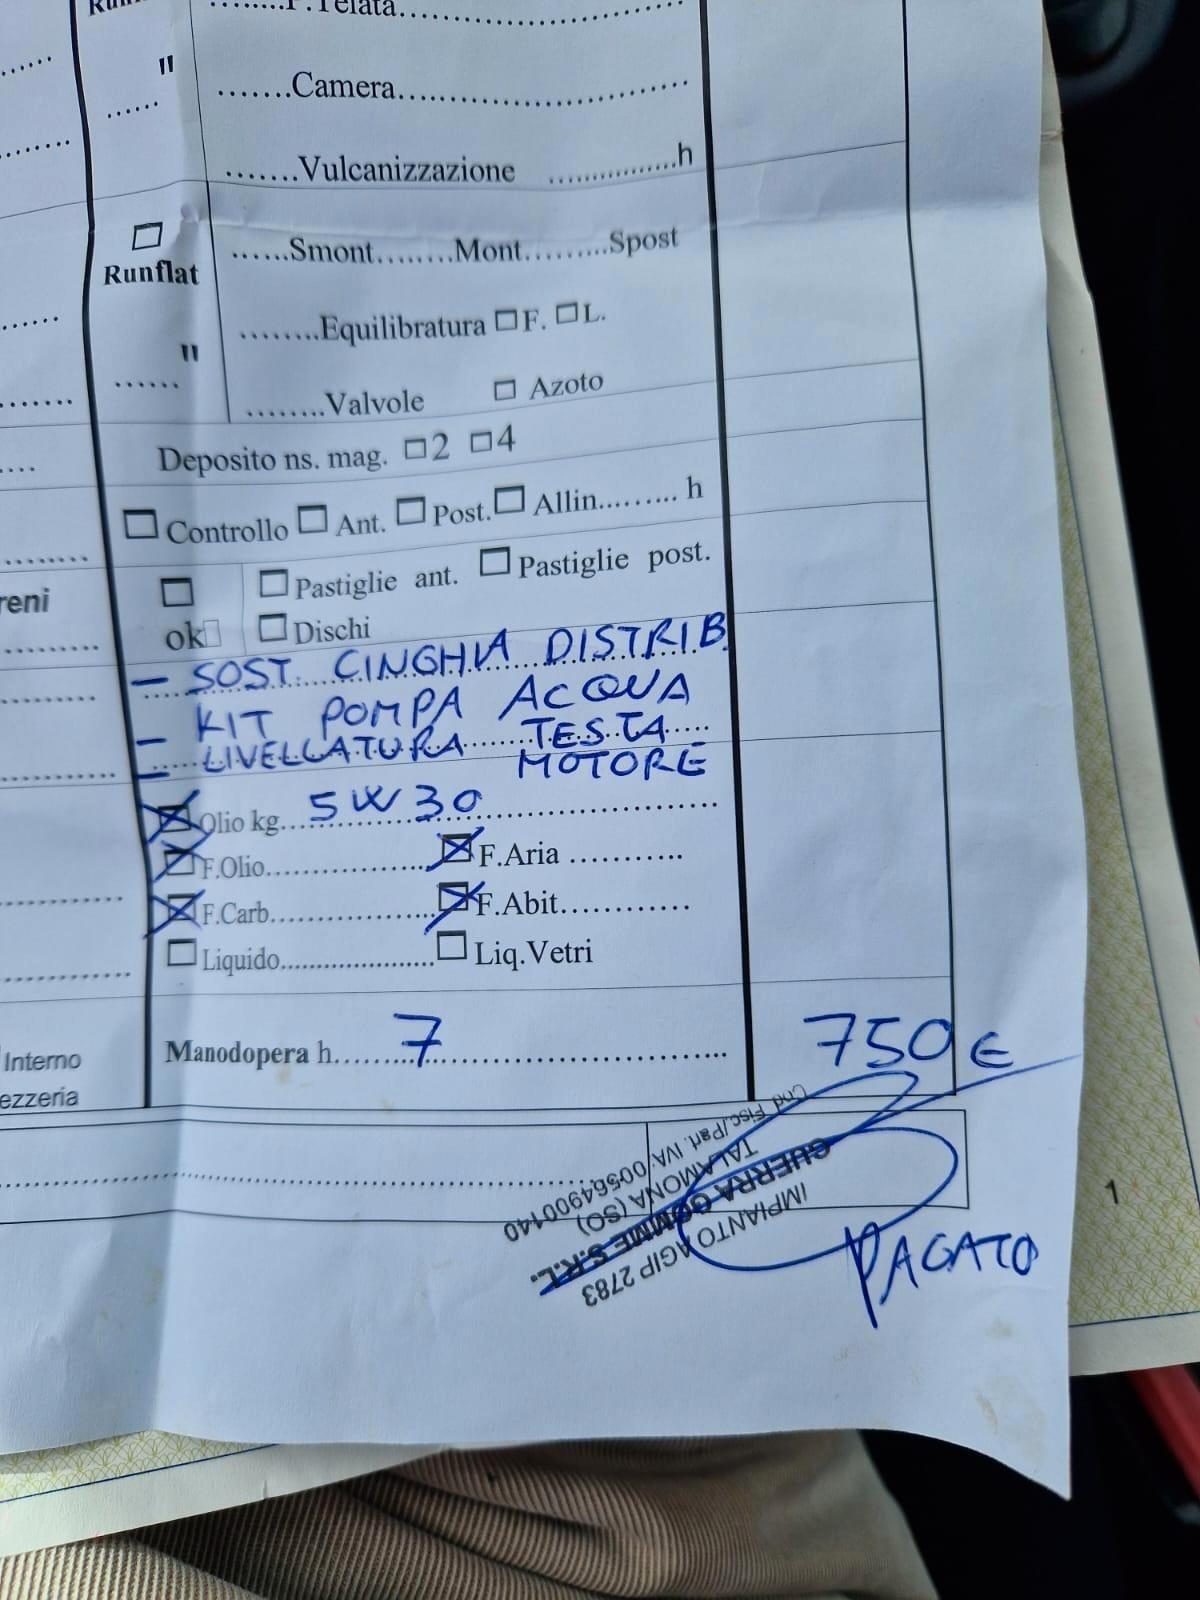 P.Telata
" Camera
Vulcanizzazione h
Runflat Smont Mont Spost
Equilibratura F. L.
"
Valvole Azoto
Deposito ns. mag. 2 4
Controllo Ant. Post. Allin......... h
Pastiglie ant. Pastiglie post.
ok Dischi
- SOST. CINGHIA DISTRIB
- KIT POMPA ACQUA
- LIVELLATURA TESTA
MOTORE
Olio kg. 5W30
F.Olio F.Aria
F.Carb F.Abit
Liquido Liq.Vetri
Interno Manodopera h. 7 750 €
IMPIANTO AGIP 2783
GUERRA GOMME S.R.L.
TALAMONA (SO)
Cod. Fisc./Part. IVA: 00564900140
PAGATO
1